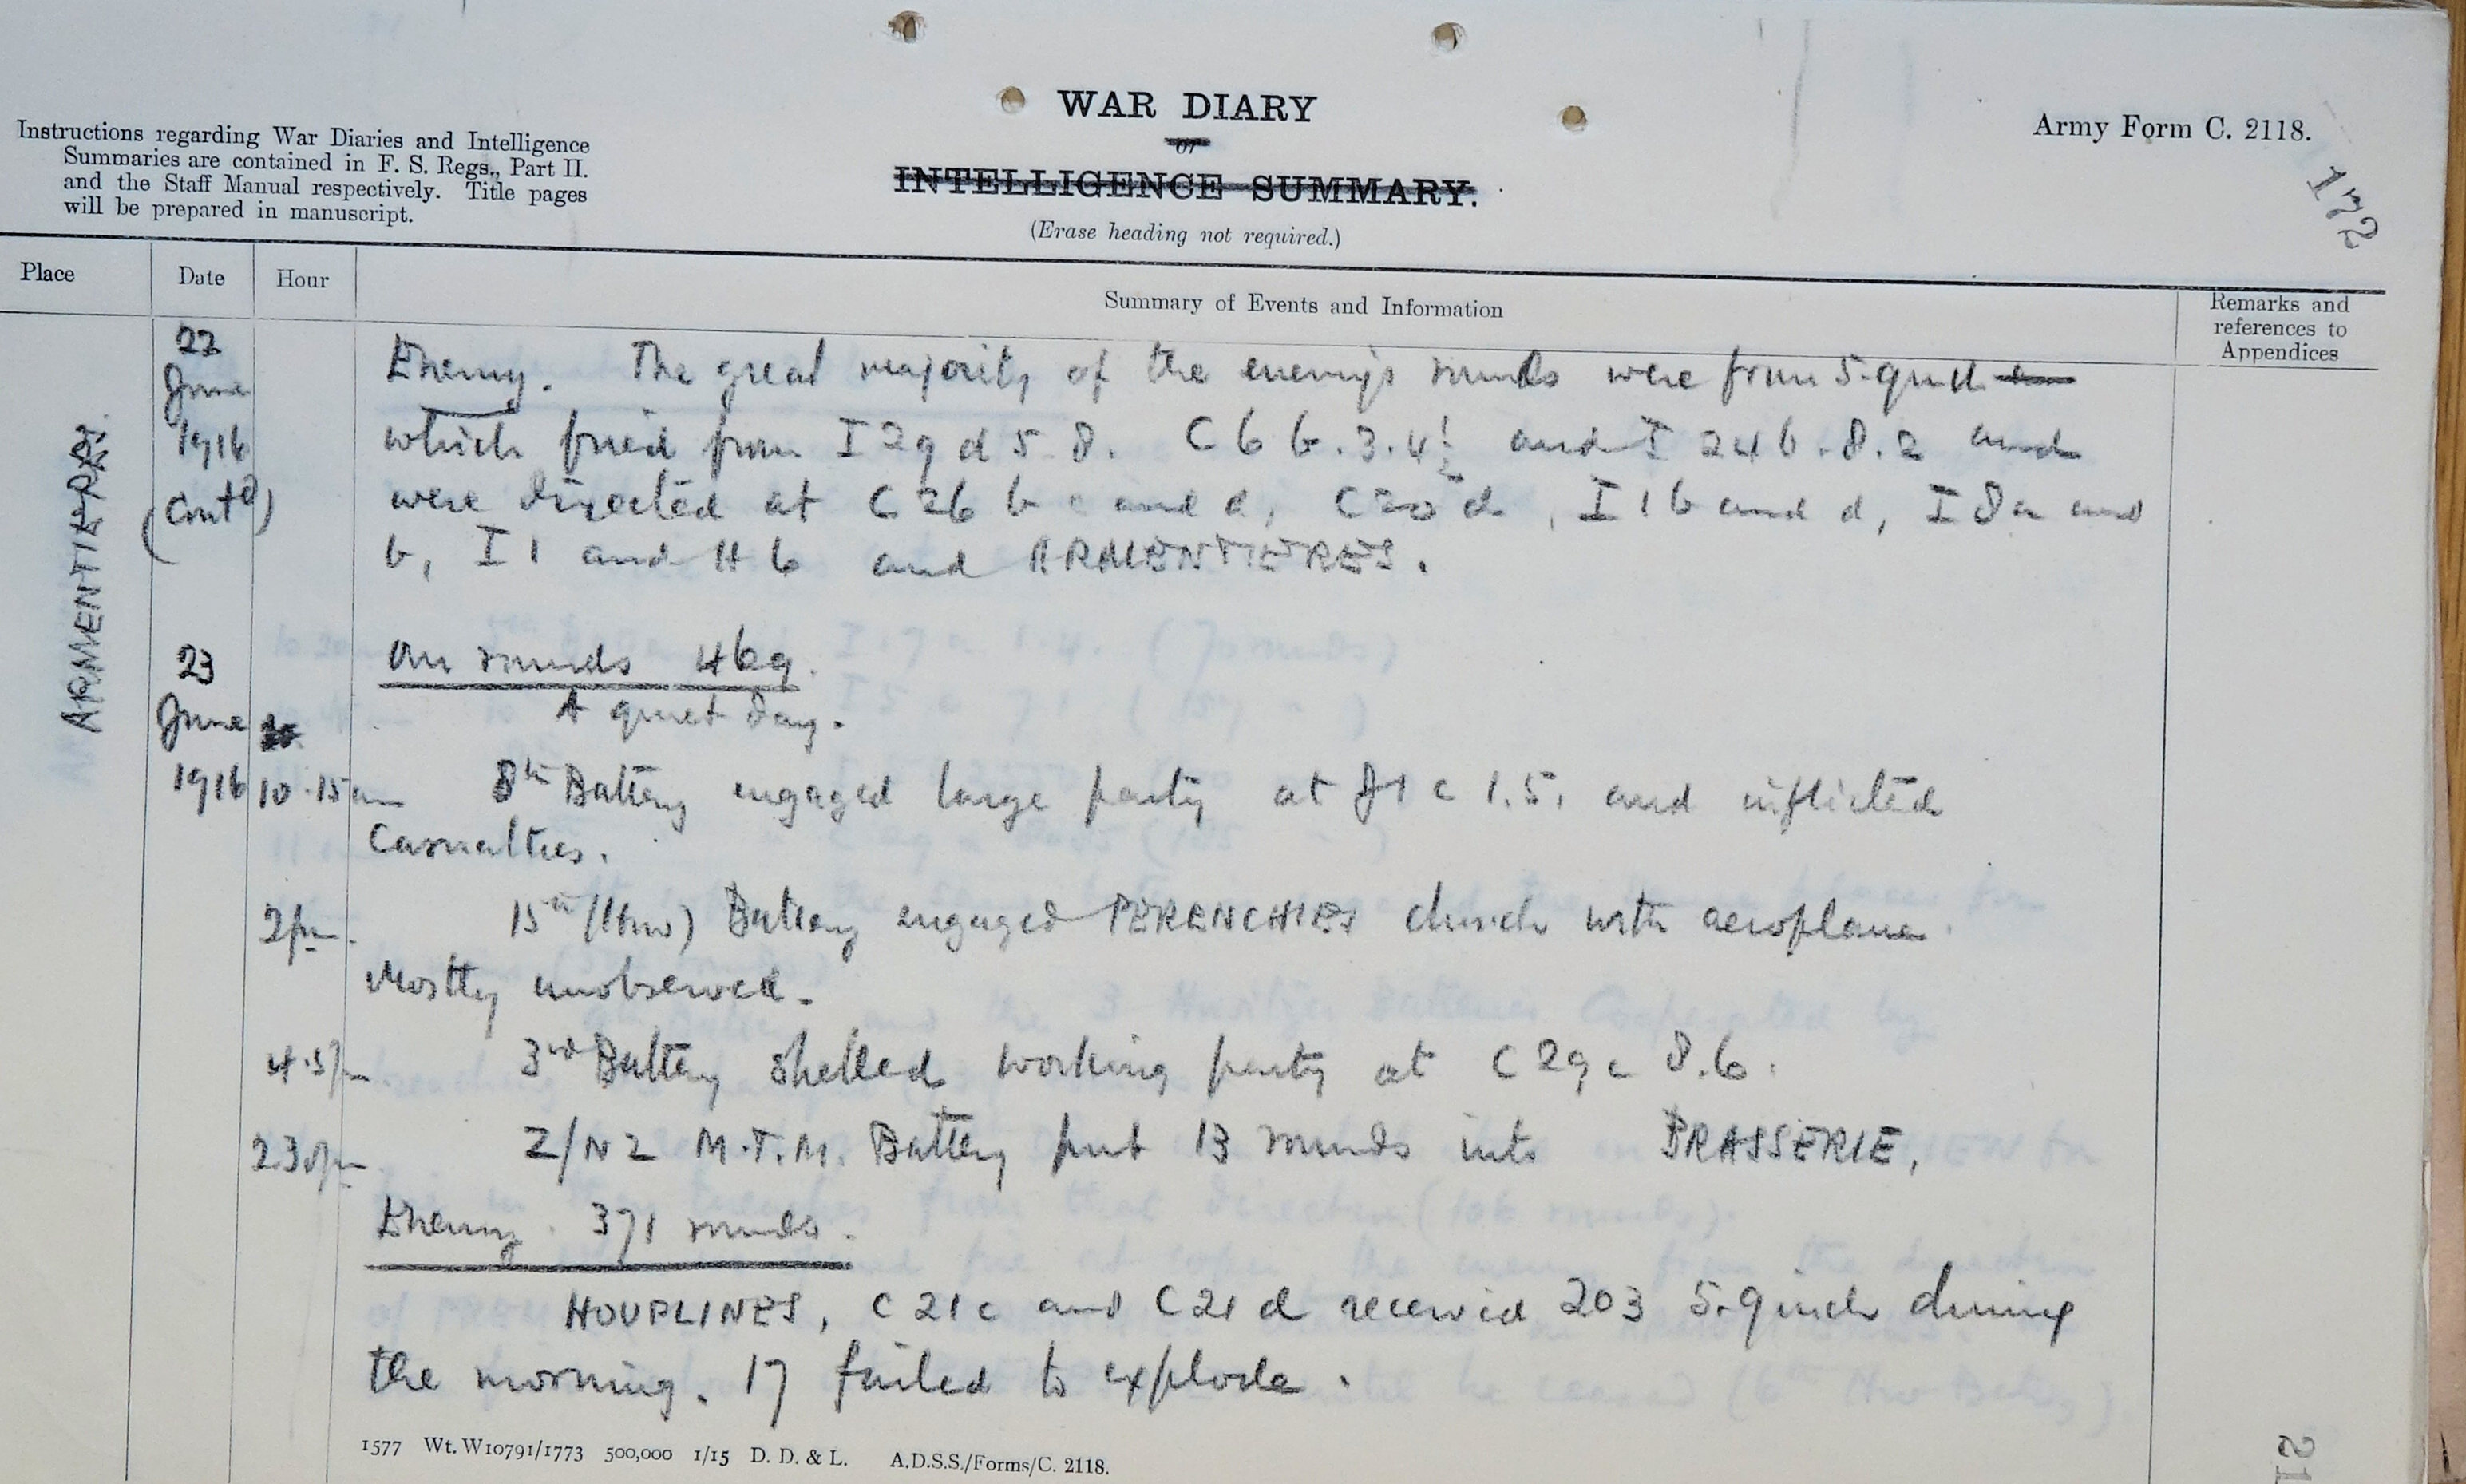 WAR DIARY
or
INTELLIGENCE SUMMARY.
(Erase heading not required.)
Army Form C. 2118.
172
Instructions regarding War Diaries and Intelligence
Summaries are contained in F. S. Regs., Part II.
and the Staff Manual respectively. Title pages
will be prepared in manuscript.
Place Date Hour Summary of Events and Information Remarks and
references to
Appendices
ARMENTIERES.
22
June
1916
(Contd)
Enemy. The great majority of the enemy's rounds were from 5.9 inch
which fired from I 29 d 5.8. C 6 b.3.4½ and I 24 b.8.2 and
were directed at C 26 b c and d, C 20 d, I 1 b and d, I 8 a and
b, I 1 and H 6 and ARMENTIERES.
23
June
1916
Our rounds 469.
A quiet day.
10.15am 8th Battery engaged large party at J1 c 1.5. and inflicted
Casualties.
2pm. 15th (How) Battery engaged PERENCHIES church with aeroplane.
Mostly unobserved.
4.5pm 3rd Battery shelled working party at C 29 c 8.6.
2.30pm Z/NZ M.T.M. Battery put 13 rounds into BRASSERIE,
Enemy. 371 rounds.
HOUPLINES, C 21 c and C 21 d received 203 5.9 inch during
the morning. 17 failed to explode.
1577 Wt. W10791/1773 500,000 1/15 D. D. & L. A.D.S.S./Forms/C. 2118.
21